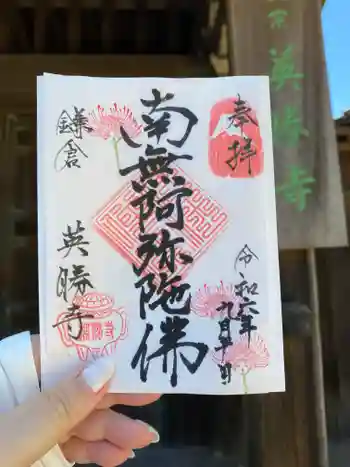 奉拝
令和六年
九月十一日
南無阿弥陀佛
鎌倉
英勝寺
英勝寺